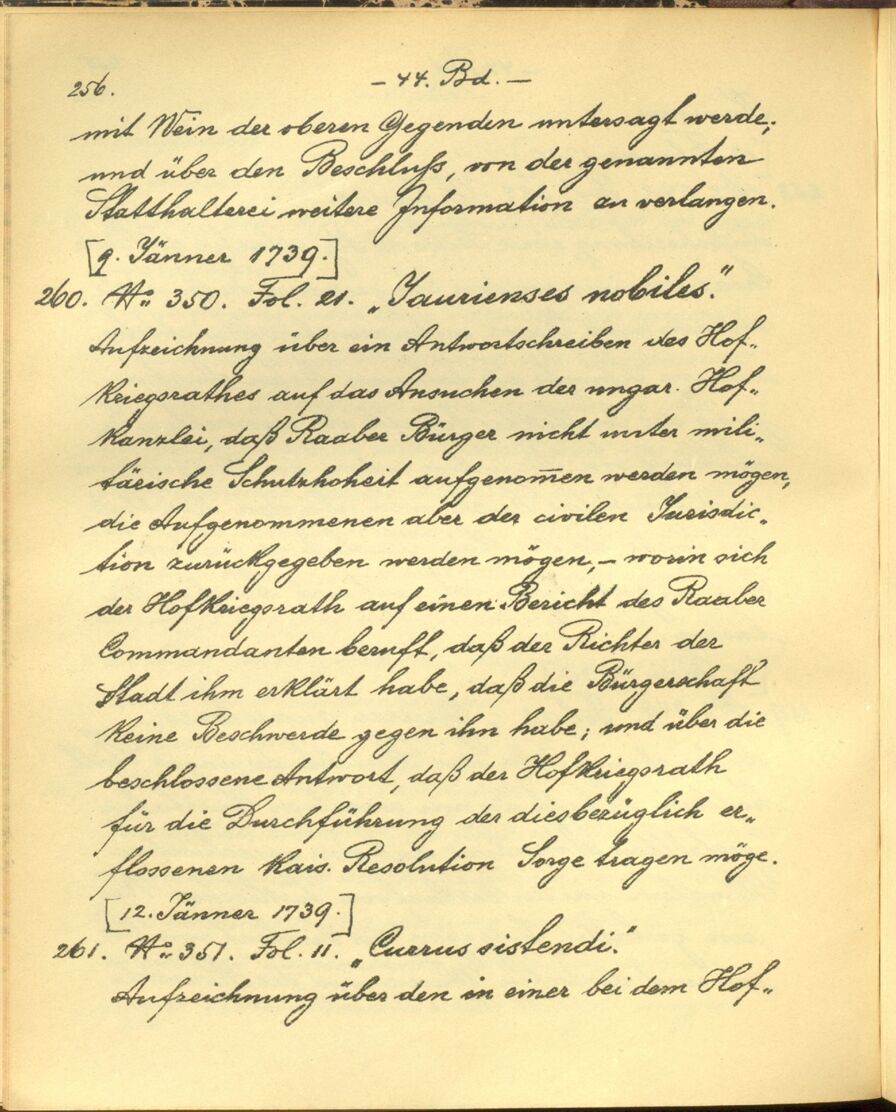 256.
– 44. Bd. –
mit Wein der oberen Gegenden untersagt werde;
und über den Beschluß, von der genannten
Statthalterei weitere Information zu verlangen.
[9. Jänner 1739.]
260. No 350. Fol. 21. „Jaurienses nobiles."
Aufzeichnung über ein Antwortschreiben des Hof„
kriegsrathes auf das Ansuchen der ungar. Hof„
kanzlei, daß Raaber Bürger nicht unter mili„
tärische Schutzhoheit aufgenom̅en werden mögen,
die Aufgenommenen aber der civilen Jurisdic„
tion zurückgegeben werden mögen, – worin sich
der Hofkriegsrath auf einen Bericht des Raaber
Commandanten beruft, daß der Richter der
Stadt ihm erklärt habe, daß die Bürgerschaft
keine Beschwerde gegen ihn habe; und über die
beschlossene Antwort, daß der Hofkriegsrath
für die Durchführung der diesbezüglich er„
flossenen kais. Resolution Sorge tragen möge.
[12. Jänner 1739.]
261. No 351. Fol. 11. „Currus sistendi."
Aufzeichnung über den in einer bei dem Hof„